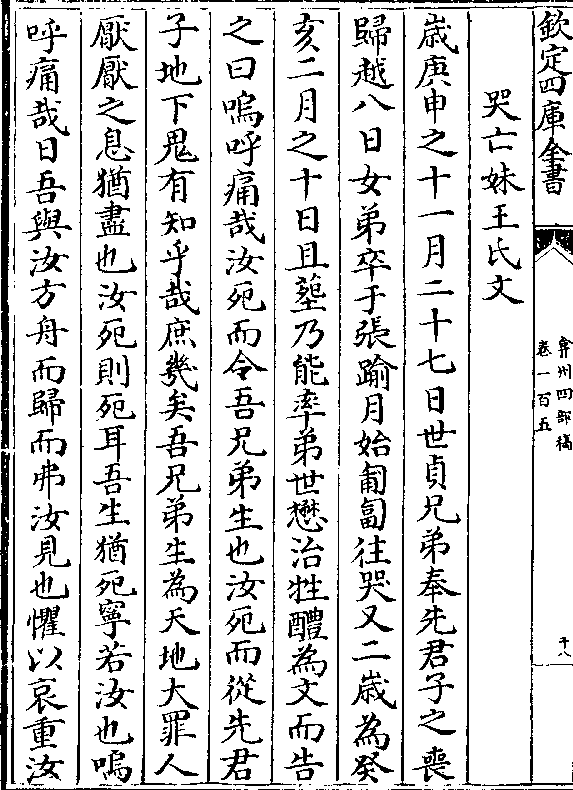 欽定四庫全書
弇州四部稿
卷一百五
十八
哭亡妹王氏文
嵗庚申之十一月二十七日世貞兄弟奉先君子之喪
歸越八日女弟卒于張踰月始匍匐往哭又二嵗為癸
亥二月之十日且塟乃能率弟世懋治牲醴為文而告
之曰嗚呼痛哉汝死而令吾兄弟生也汝死而從先君
子地下鬼有知乎哉庶幾矣吾兄弟生為天地大罪人
厭厭之息猶盡也汝死則死耳吾生猶死寧若汝也嗚
呼痛哉日吾與汝方舟而歸而弗汝見也懼以哀重汝